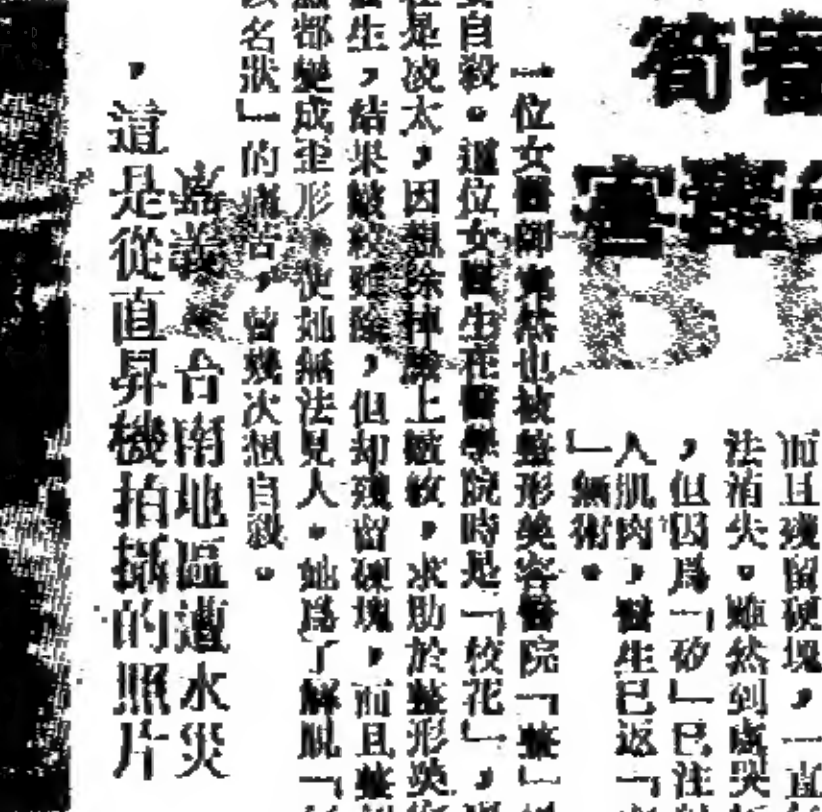 春筍
害
而且殘留硬塊，一直
法消失。雖然到處哭
，但因爲「矽」已注
人肌肉，醫生已返「
」無術。
一位女醫師竟然也被整形美容醫院「整」
自殺。這位女醫生在醫學院時是「校花」，
是凌太，因想除掉臉上皺紋，求助於整形美
生，結果皺紋雖除，但却殘留硬塊，而且整
都變成歪形，使她無法見人。她爲了解脫「
名狀」的痛苦，曾幾次想自殺。
嘉義、台南地區遭水災
，這是從直昇機拍攝的照片